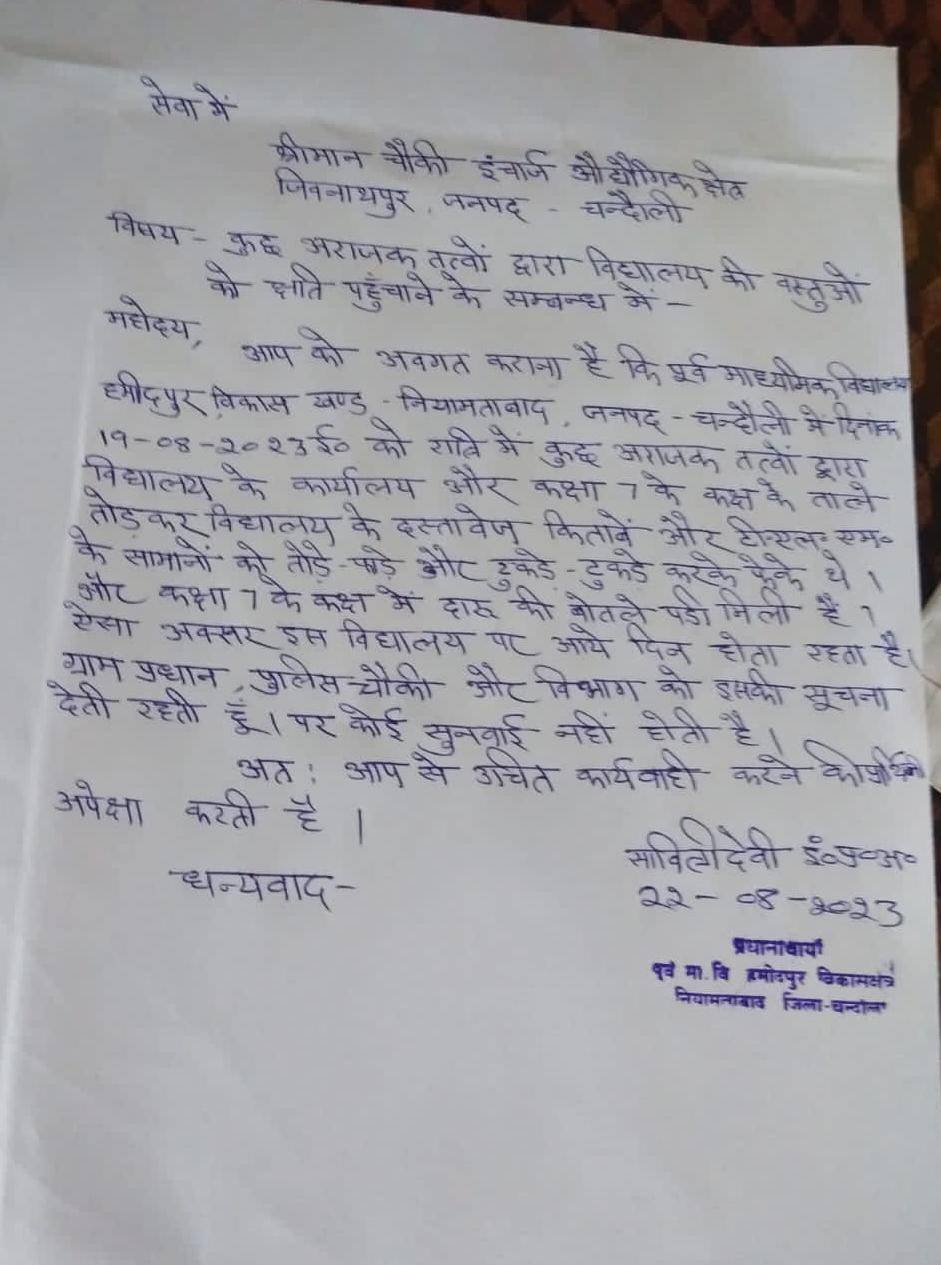 सेवा में
श्रीमान चौकी इंचार्ज औद्यौगिक क्षेत्र
जिवनाथपुर, जनपद - चन्दौली
विषय - कुछ अराजक तत्वों द्वारा विद्यालय की वस्तुओं
को क्षति पहुँचाने के सम्बन्ध में -
महोदय,
आप को अवगत कराना है कि पूर्व माध्यमिक विद्यालय
हमीदपुर, विकास खण्ड - नियामताबाद, जनपद - चन्दौली में दिनांक
19-08-2023 ई० को रात्रि में कुछ अराजक तत्वों द्वारा
विद्यालय के कार्यालय और कक्षा 7 के कक्ष के ताले
तोड़कर विद्यालय के दस्तावेज किताबें और टी०एल० एम०
के सामानों को तोड़े-फाड़े और टुकड़े-टुकड़े करके फेंके थे।
और कक्षा 7 के कक्ष में दारू की बोतले पडी मिली है।
ऐसा अक्सर इस विद्यालय पर आये दिन होता रहता है।
ग्राम प्रधान, पुलिस-चौकी और विभाग को इसकी सूचना
देती रहती हूँ। पर कोई सुनवाई नहीं होती है।
अत: आप से उचित कार्यवाही करने की प्रार्थिनी
अपेक्षा करती है।
धन्यवाद-
सावित्री देवी इं०प्र०अ०
22-08-2023
प्रधानाचार्या
पूर्व मा. वि हमीदपुर विकासक्षेत्र
नियामताबाद जिला-चन्दौली